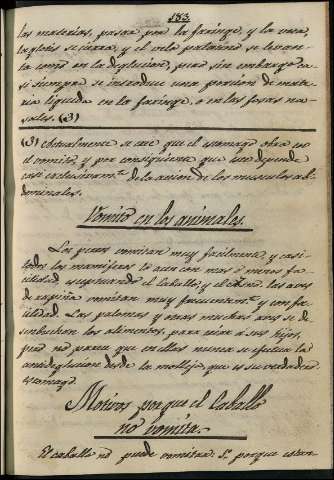 183.
las materias, pasar por la faringe, y la nariz,
la glotis se cierra, y el velo palatino se levan-
ta como en la deglucion, pero sin embargo ca-
si siempre se introduce una porcion de mate-
ria liquida en la faringe, o en las fosas na-
sales. (3)
(3) Actualmente se cree que el estomago obra en
el vomito, y por consiguiente que este depende
casi exclusivamte. de la accion de los musculos ab-
dominales.
Vomito en los animales.
Los perros vomitan muy facilmente, y casi
todos los mamiferos lo acen con mas ó menos fa-
cilidad, esceptuando el caballo, y el
de rapiña vomitan muy frecuentemte. y con fa-
cilidad. Las palomas y otras muchas aves se de-
sembuchan los alimentos, para criar á sus hijos,
pero no parece que en ellas nunca se efectua la
antideglucion desde la molleja, que es su verdadero
estomago.
Motivos porque el Caballo
no vomita.
El caballo no puede vomitar: 1º. porque estan-